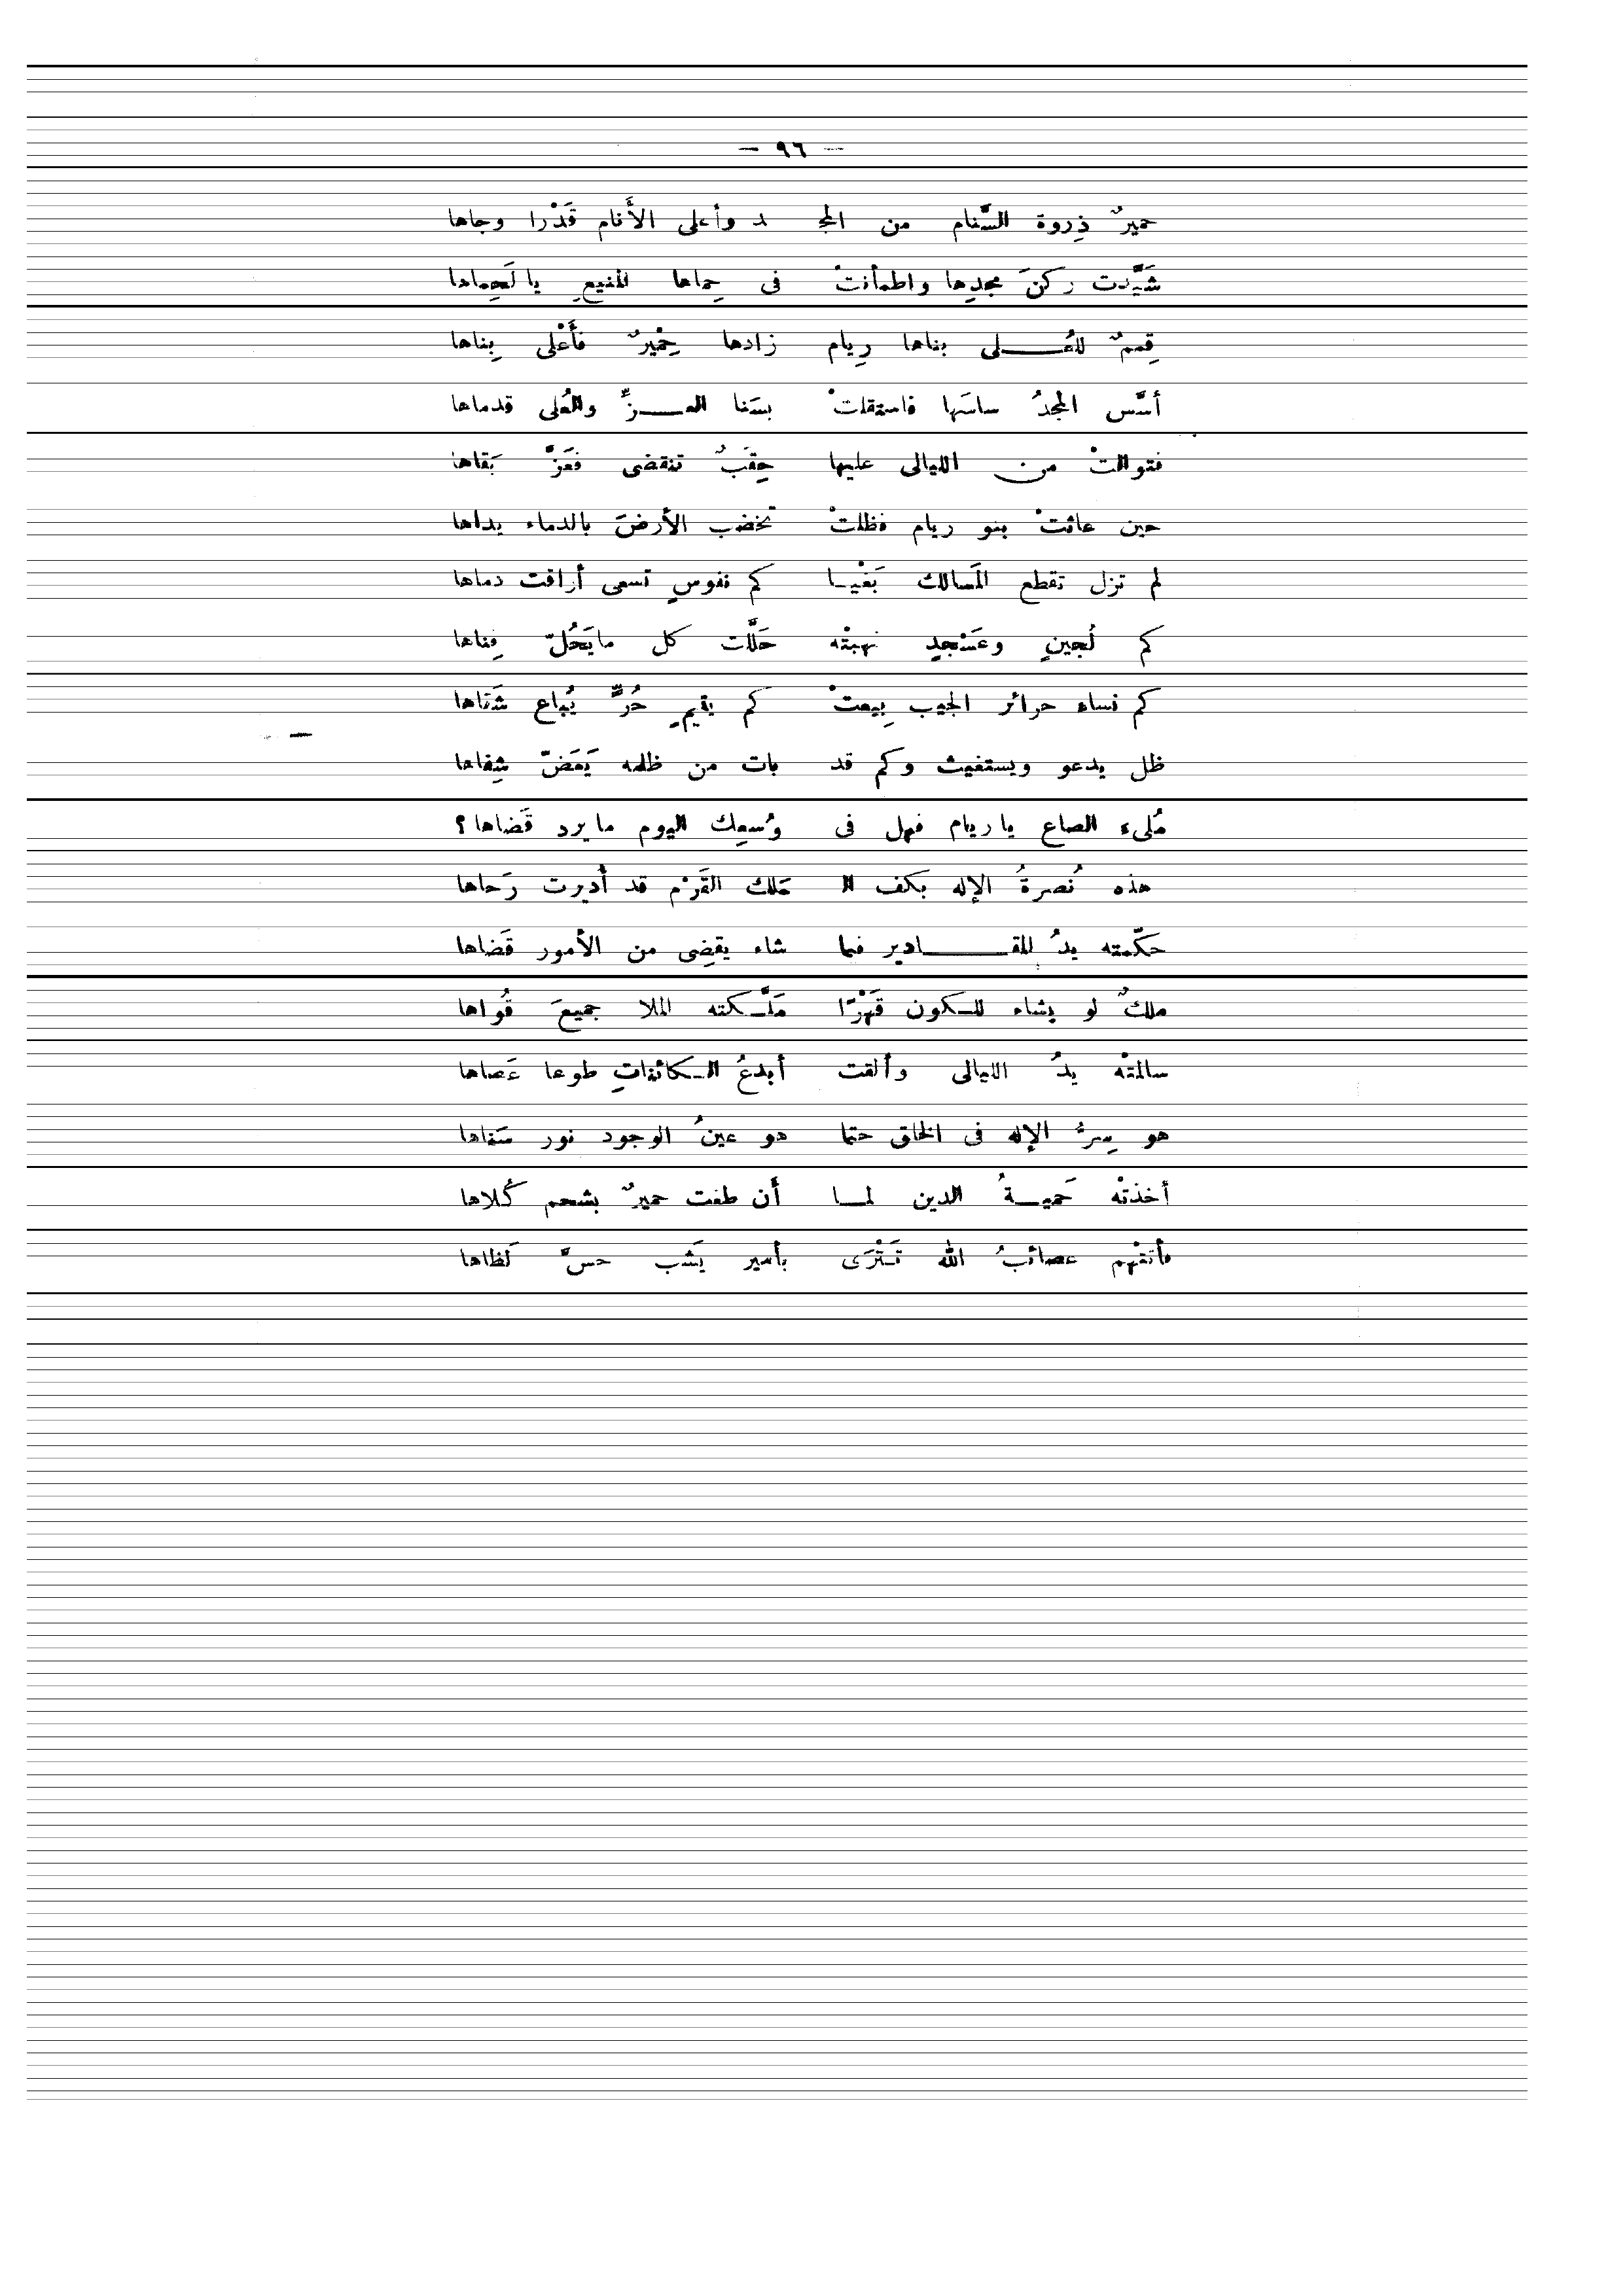 — ٩٦ —
حميرٌ ذِروة السَّنام من المجـ ـد وأعلى الأَنام قَدْرا وجاها
شَيَّدت ركنَ مجدِها واطمأنتْ فى حِماها المنيعِ يا لَحِماها
قِممٌ للعُـــلى بناها رِيام زادها حِمْيرٌ فأَعْلى بِناها
أسَّس المجدُ ساسَها فاستقلتْ بسَنا العـــزِّ والعُلى قدماها
فتوالتْ من الليالى عليها حِقَبٌ تنقضى فعَزَّ بَقاها
حين عاثتْ بنو ريام فظلتْ تخضب الأرضَ بالدماء يداها
لم تزل تقطع المَسالك بَغْيـا كم نفوسٍ تسعى أراقت دماها
كم لُجينٍ وعَسْجدٍ نهبتْه حَلَّت كل مايَحُلّ فِناها
كم نساء حرائر الجيب بِيعتْ كم يتيمٍ حُرٍّ يُباع شَتَاها
ظل يدعو ويستغيث وكم قد بات من ظلمه يَعَضّ شِفاها
مُلىء الصاع يا ريام فهل فى وُسعِك اليوم مايرد قَضاها؟
هذه نُصرةُ الإله بكف الـ ـمَلك القَرْم قد أُديرت رَحاها
حكّمته يدُ المقـــادير فما شاء يقضِى من الأمور قَضاها
ملكٌ لو يشاء للـكون قَهْرًا مَلَّـكته الملا جميعَ قُواها
سالمتْه يدُ الليالى وألقت أبدعُ الـكائناتِ طوعا عَصاها
هو سِرُّ الإله فى الخلق حتما هو عينُ الوجود نور سَناها
أخذتْه حَميـــةُ الدين لمـا أَن طغت حميرٌ بشحم كُلاها
فأتتهْم عصائبُ الله تَـتْرَى بأسير يَشب حسَّ لَظاها